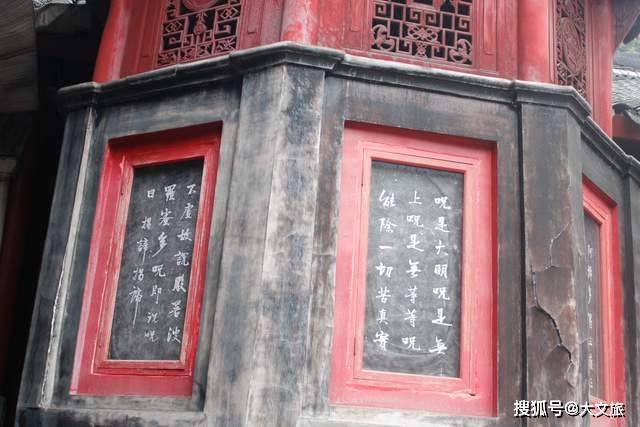 呪是大明呪是無
上呪是無等等呪
能除一切苦真實
不虛故說般若波
羅蜜多呪即說呪
曰揭諦揭諦
搜狐号@大文旅